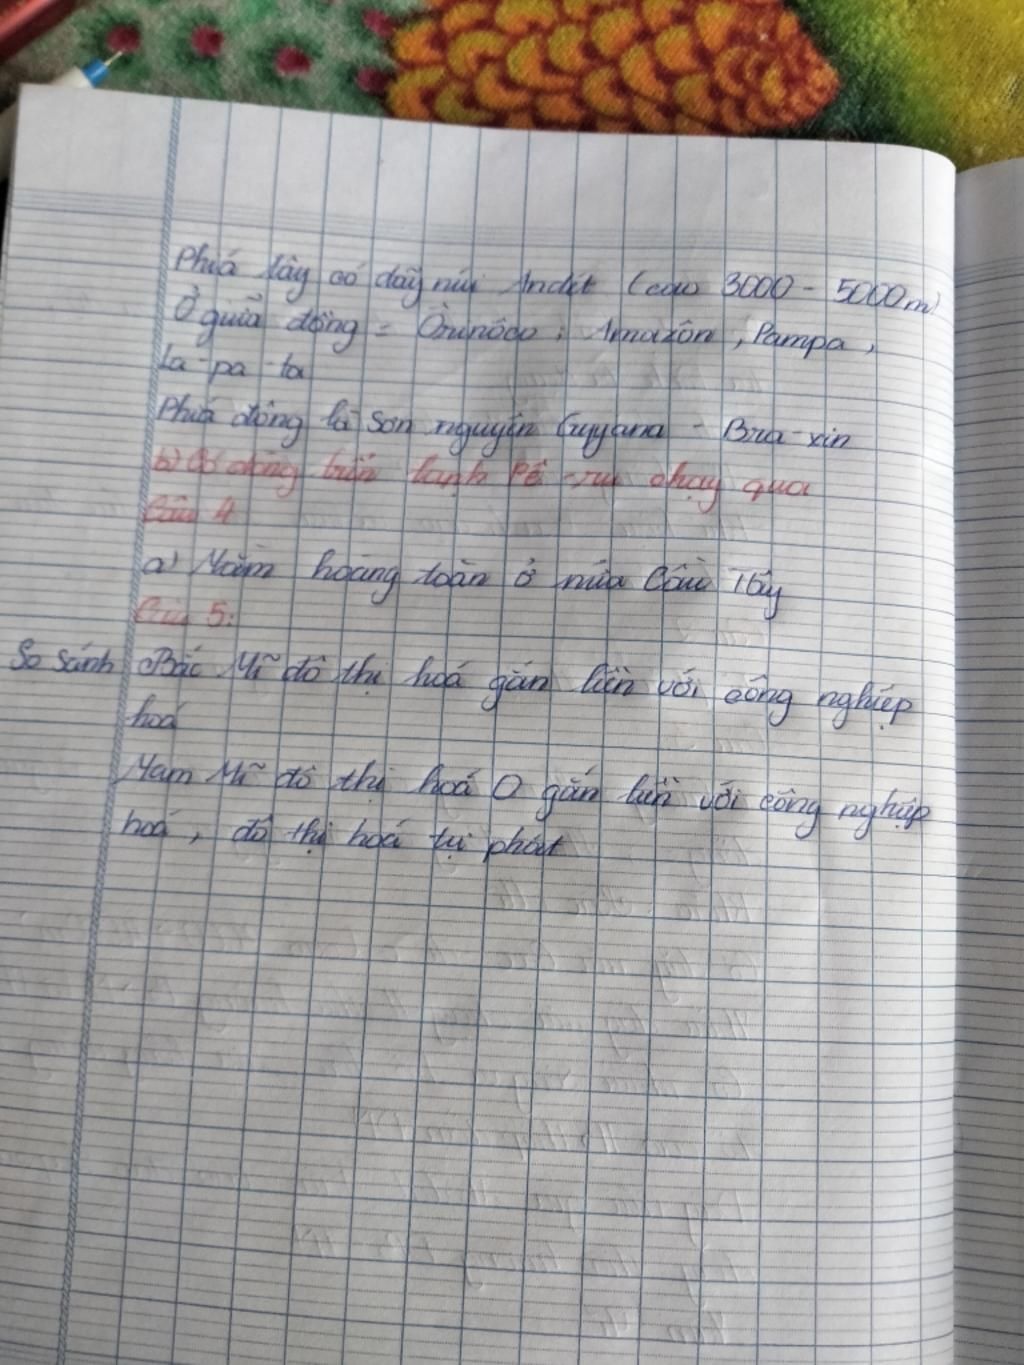 Phiá tây có dãy núi Andét (cao 3000 - 5000m)
Ở giữa đồng = Ôrinôcô, Amazôn, Pampa,
La-pa-ta
Phiá đông là sơn nguyên Guyana - Bra-xin
b) Có dòng biển lạnh Pê-ru chạy qua
Câu 4
a) Nằm hoàng toàn ở nửa Cầu Tây
Câu 5:
So sánh Bắc Mĩ đô thị hoá gắn liền với công nghiệp
hoá
Nam Mĩ đô thị hoá O gắn liền với công nghiệp
hoá, đô thị hoá tự phát